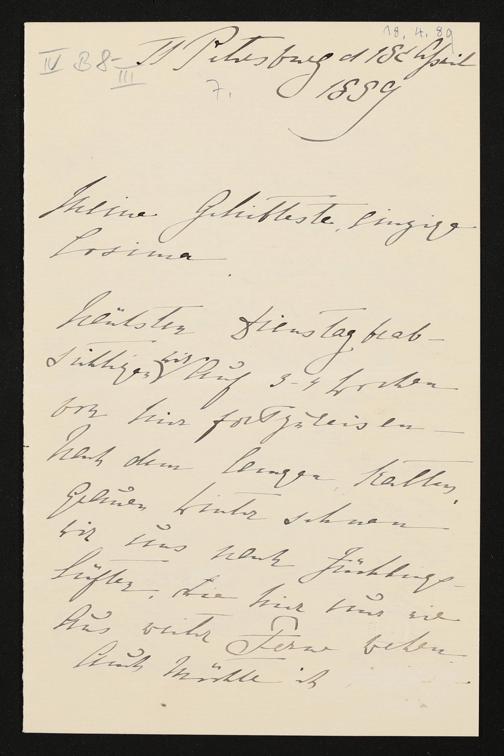 18. 4. 89
IV B 8-III
7.
St Petersburg d 18t April
1889
Meine Geliebteste, Einzige
Cosima
Nächsten Dienstag beab-
sichtigen wir auf 3-4 Wochen
von hier fortzureisen –
Nach dem langen, kalten,
grauen Winter sehnen
wir uns nach Frühlings-
lüften, die hier nur wie
aus weiter Ferne wehen
Auch möchte ich